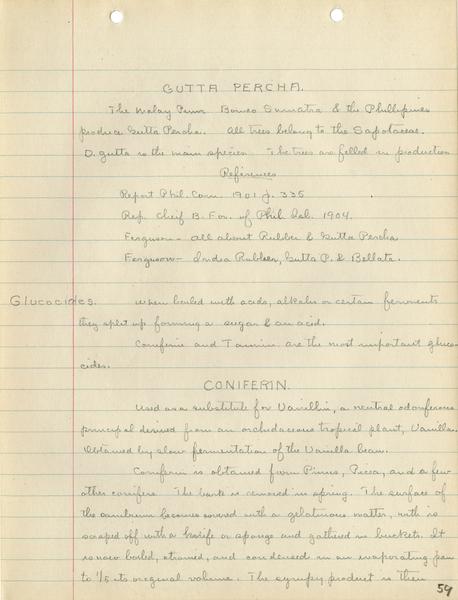 GUTTA PERCHA.
The Malay Penn Borneo Sumatra & the Phillipines
produce Gutta Percha. All trees belong to the Sapotaceae.
D. gutta is the main species The trees are felled in production
References
Report Phil. Com. 1901 p. 335
Rep. Cheif B. For. of Phil Isl. 1904.
Ferguson - All about Rubber & Gutta Percha
Ferguson - India Rubber, Gutta P. & Bellata.
Glucocides. When boiled with acids, alkalies or certain ferments
they split up forming a sugar & an acid.
Coniferin and Tannin are the most important gluco-
cides.
CONIFERIN.
Used as a substitute for Vanillin, a neutral odoriferous
principal derived from an orchidaceous tropical plant, Vanilla.
Obtained by slow fermentation of the Vanilla bean.
Coniferin is obtained from Pinus, Picea, and a few
other conifers. The bark is removed in spring. The surface of
the cambium becomes covered with a gelatinous matter, with is
scraped off with a knife or sponge and gathered in buckets. It
is now boiled, strained, and condensed in an evaporating pan
to 1/5 its original volume. The syrupy product is then
59